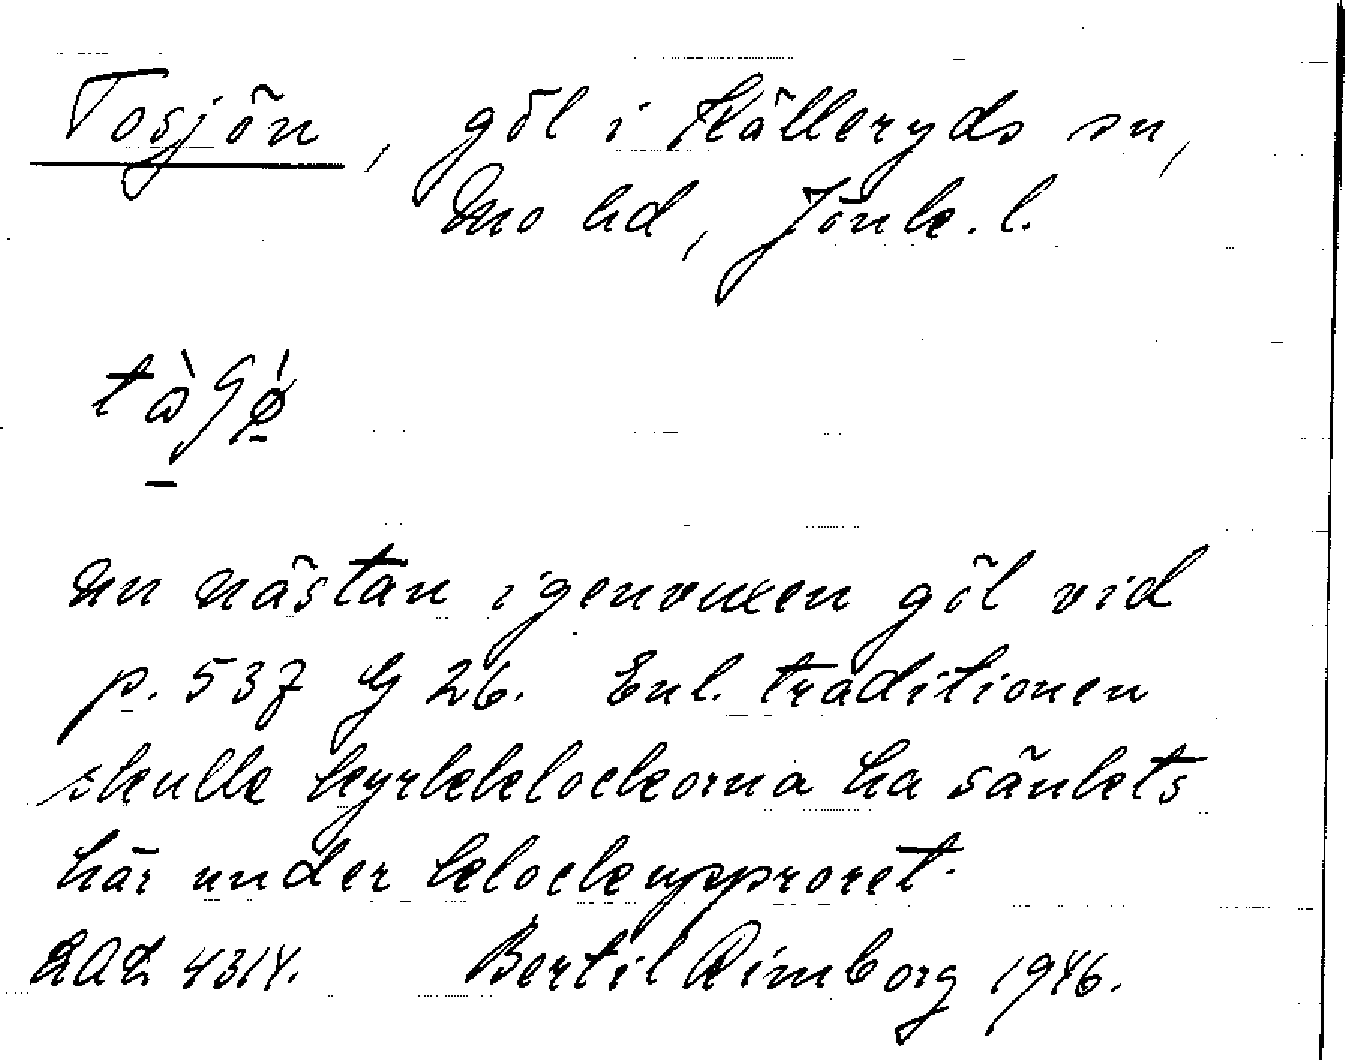 Tosjön, göl i Källeryds sn,
Mo hd, Jönk. l.
Nu nästan igenvuxen göl vid
p. 537 G 26. Enl. traditionen
skulle kyrkklockorna ha sänkts
här under klockupproret.
LAL 4314. Bertil Rimborg 1946.